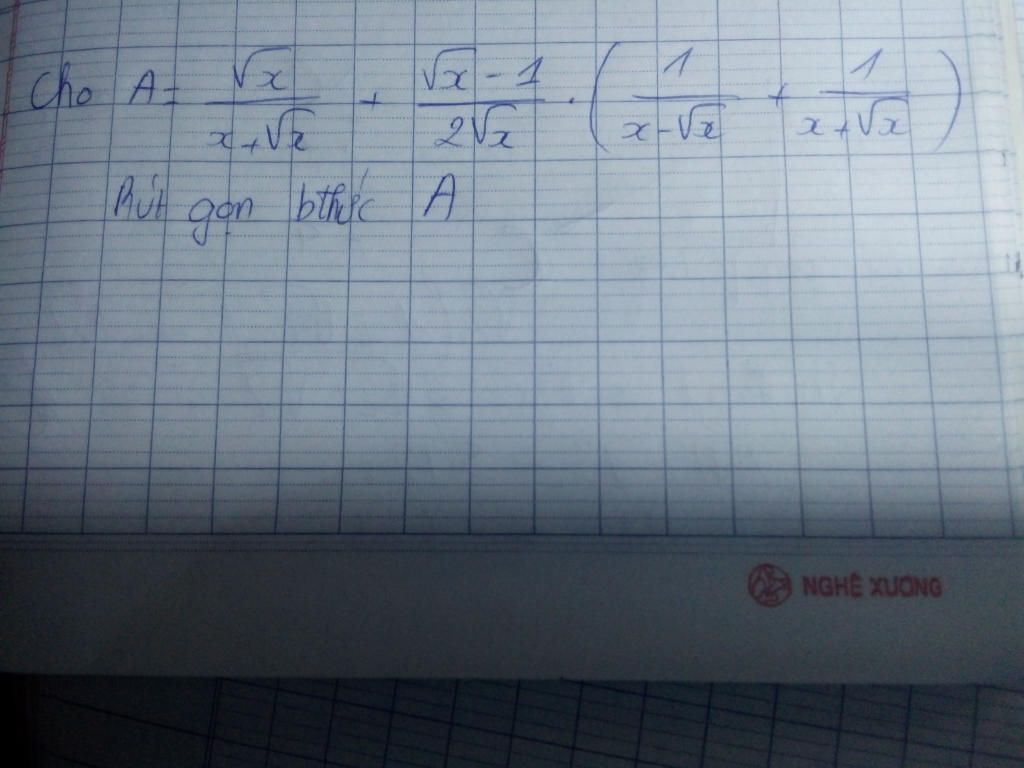 Cho A = √x / (x + √x) + (√x - 1) / (2√x) . (1 / (x - √x) + 1 / (x + √x))
Rút gọn bthức A
NGHÊ XUONG